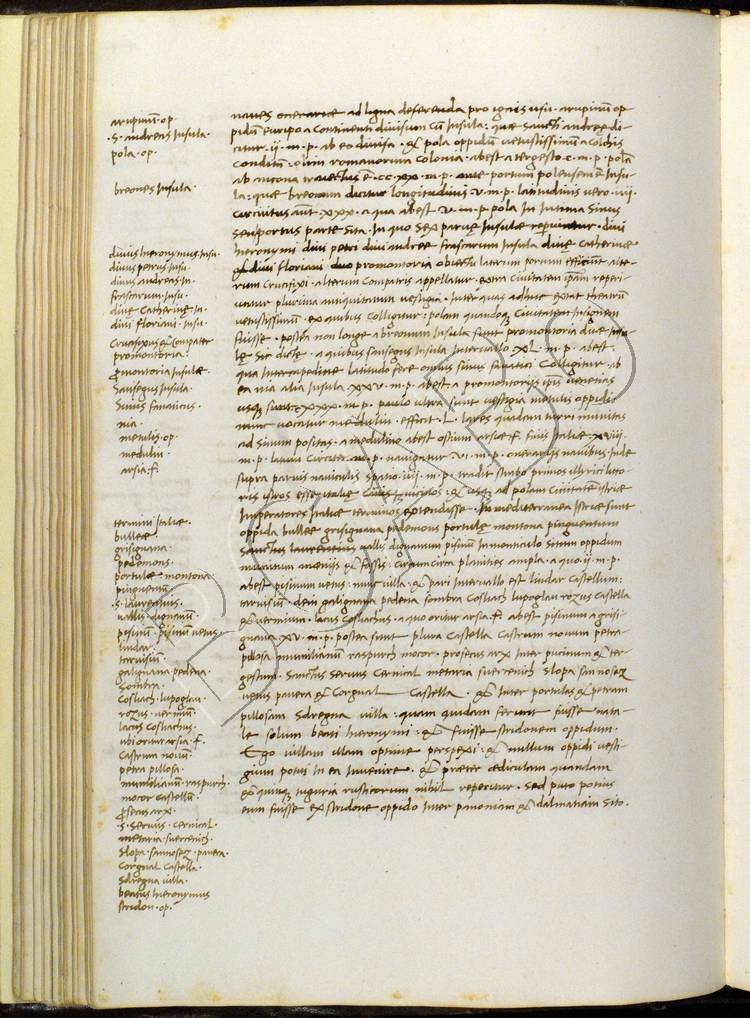 arupinū op
.S. andreas Insula.
pola. op.
breones Insula.
divus hieronymus Insu.
divus petrus Insu.
divus andreas In.
frascarum Insu.
dive Catherinę In.
divi Floriani. Insu.
Crucifixus & Compater
promontoria.
promontoria Insulæ.
Sansegus Insula.
Sinus fanaticus.
nia.
metulis. op.
medulin.
arsia. f.
termini Italiæ.
bulleæ.
grisignana.
pedemons.
portulæ montona.
pinguentū.
.S. laurentius.
vallis dignanum.
pisinū. pisinū vetus.
lindar.
tarvisiū.
galignana pedena.
Sombra.
Cosliach. lupoglau.
rozus. vermiū.
lacus Cosliachus.
ubi oritur arsia. f.
Castrum novū.
petra pillosa.
mumilianū. raspurch.
mocor Castellū.
prosecus arx.
.S. Servus. Cernical.
metaria suercenich.
Slopa. sannosez. pavera.
Corgnal Castella.
Sdregna villa.
beatus hieronymus
Stridon. op.
naves onerariæ ad ligna deferenda pro ignis usu. arupinū op
pidū euripo a Continenti divisum cū Insula: quæ Sancti andreę di-
citur. ii. m. p. ab eo divisa. & pola oppidū vetustissimū a colchis
Conditū: olim romanorum Colonia. abest a tergesto. c. m. p. polā
ab ancona travectus ē. cc. xx. m. p. ante portum polensem ē Insu-
la: quæ breonum dicitur longitudinis. v. m. p. latitudinis vero. iiii.
Circuitus aūt. xxx. a qua abest. v. m. p. pola In Intima Sinus
Seu portus parte Sita. In quo Sex parvæ Insulæ reperiuntur. divi
hieronymi divi petri divi andreę frascarum Insula divę Catherinæ
& divi Floriani duo promontoria obiectu laterum portum efficiunt alte-
rum Crucifixi. alterum Compatris appellatur. extra Civitatem ipsam reperi-
untur plurima antiquitatum vestigia. Inter quas adhuc extat theatrū
vetustissimū. ex quibus Colligitur: polam quandoque Civitatem Insignem
fuisse. postea non longe a breonum Insula sunt promontoria duæ Insu-
lę Sic dictę. a quibus Sansegus Insula Intervallo. xl. m. p. abest.
qua Intercapedine latitudo fere omnis sinus fanatici Colligitur. ab
ea nia alia Insula. xxv. m. p. abest. a promontorijs ipsis venetias
usque sunt. cxxx. m. p. paulo ultra sunt vestigia metulis oppidi
nunc vocatur medulin. efficit. l. lares quadam turri munitas
ad Sinum positas. a medulino abest ostium arsiæ. f. finis Italiæ. xviii.
m. p. latum Circiter. m. p. navigatur. vi. m. p. onerarijs navibus. Inde
supra parvis naviculis spatio. iiii. m. p. tradit strabo primos illyrici litto-
ris istros esse
Imperatores Italiæ terminos extendisse. In mediterranea Istriæ sunt
oppida bulleæ grisignana pedemons portulę montona pinguentum
Sanctus laurentius vallis dignanum pisinū In monticulo situm oppidum
munitum menijs & fossis. Circumcirca planities ampla. a quo. ii. m. p.
abest pisinum vetus. nunc villa. & pari Intervallo est lindar Castellum:
tarvisiū. dein galignana pedena Sombra Cosliach lupoglau rozus Castella
& vermium. lacus Cosliachus. a quo oritur arsia. f. abest pisinum a grisi-
gnana. xv. m. p. postea sunt plura Castella Castrum novum petra
pillosa mumilianū raspurch mocor. prosecus arx Inter pucinum & ter-
gestum. Sanctus Servus Cernical metaria suercenich Slopa sannosez
vetus pavera & Corgnal Castella. & Inter portulas & petram
pillosam Sdregna villa: quam quidam ferunt fuisse nata-
le solum beati hieronymi: & fuisse stridonem oppidum.
Ego villam illam optime perspexi: & nullum oppidi vesti-
gium potui In ea Invenire. & præter ædiculam quandam
& quinque tuguria rusticorum nihil reperitur. Sed puto potius
eum fuisse ex stridone oppido Inter panoniam & dalmatiam sito.